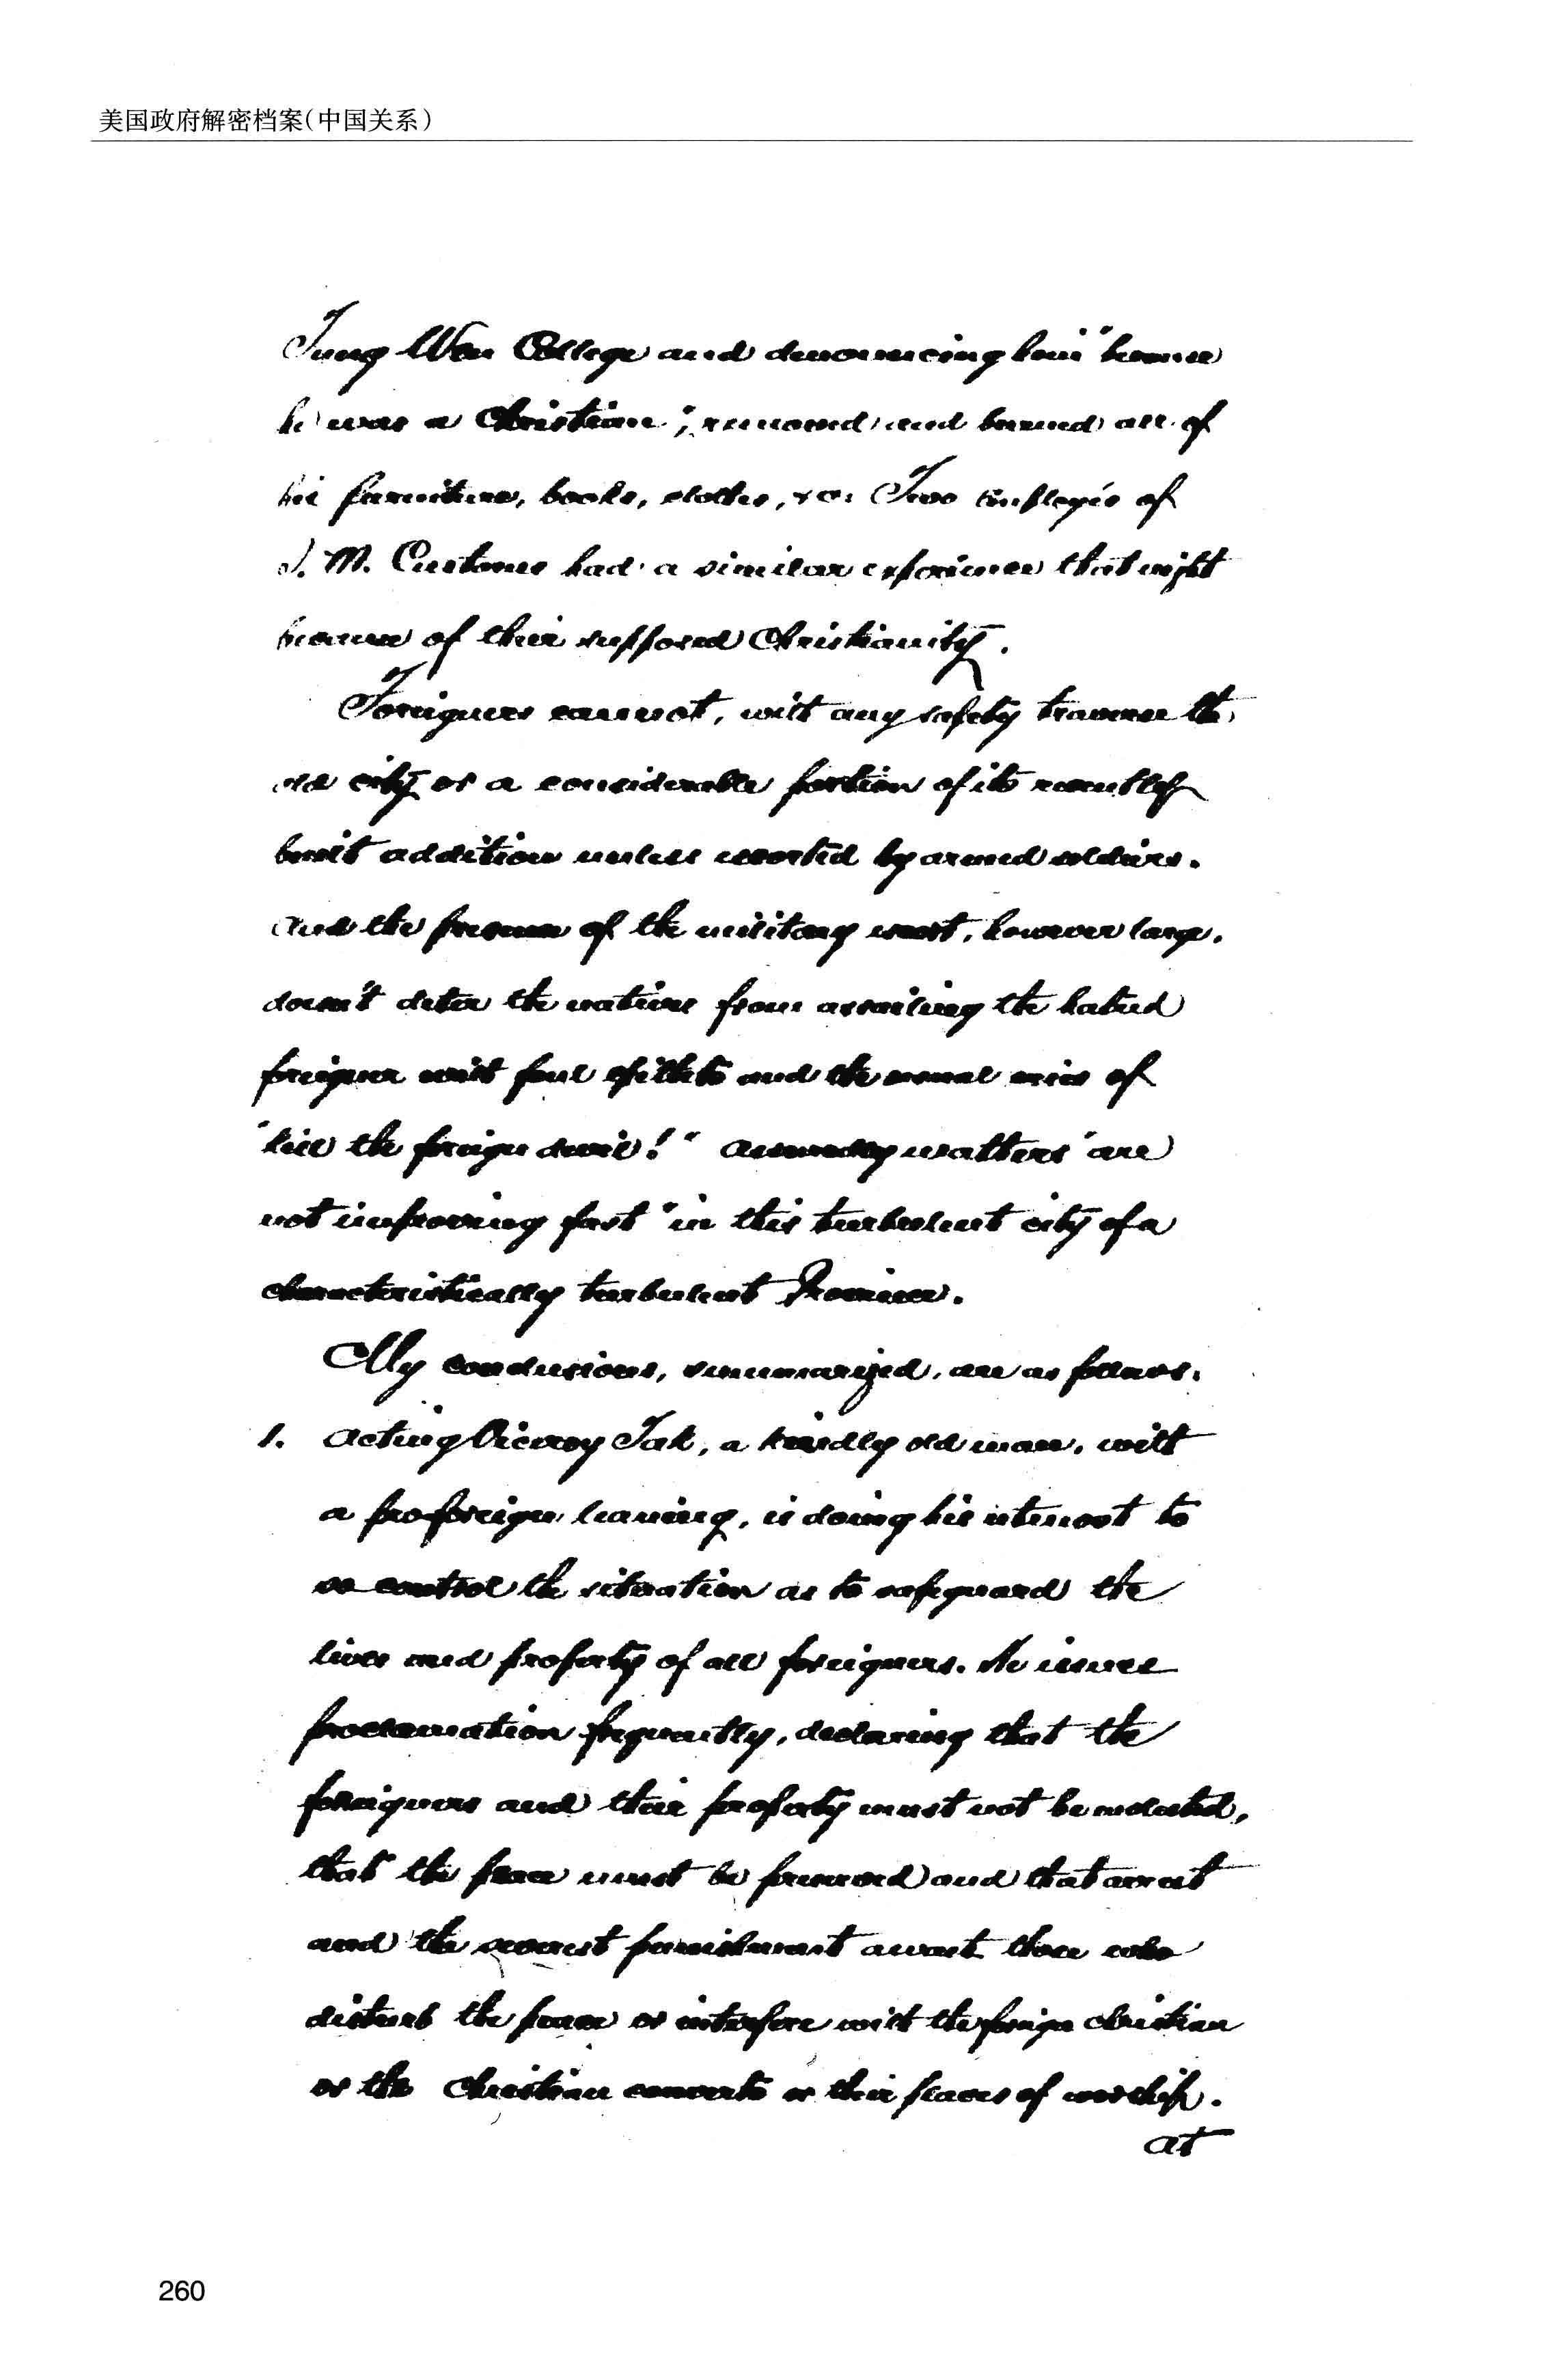 美国政府解密档案(中国关系)
Tung Wen College and denouncing him "because
he was a Christian"; removed and burned all of
his furniture, books, clothes, &c. Two employés of
I. M. Customs had a similar experience that night
because of their supposed Christianity.
Foreigners cannot, with any safety traverse the
old city or a considerable portion of its recently
built addition unless escorted by armed soldiers.
And the presence of the military escort, however large,
doesn't deter the natives from assailing the hated
foreigner with foul epithets and the usual cries of
"kill the foreign devil!" Assuredly matters "are
not improving fast" in this turbulent city of a
characteristically turbulent Province.
My conclusions, summarized, are as follows:
1. Acting Viceroy Tak, a kindly old man, with
a pro foreign leaning, is doing his utmost to
so control the situation as to safeguard the
lives and property of all foreigners. He issues
proclamation frequently, declaring that the
foreigners and their property must not be molested,
that the peace must be preserved and that arrest
and the severest punishment await those who
disturb the peace or interfere with the foreign christian
or the Christian converts or their places of worship.
At
260